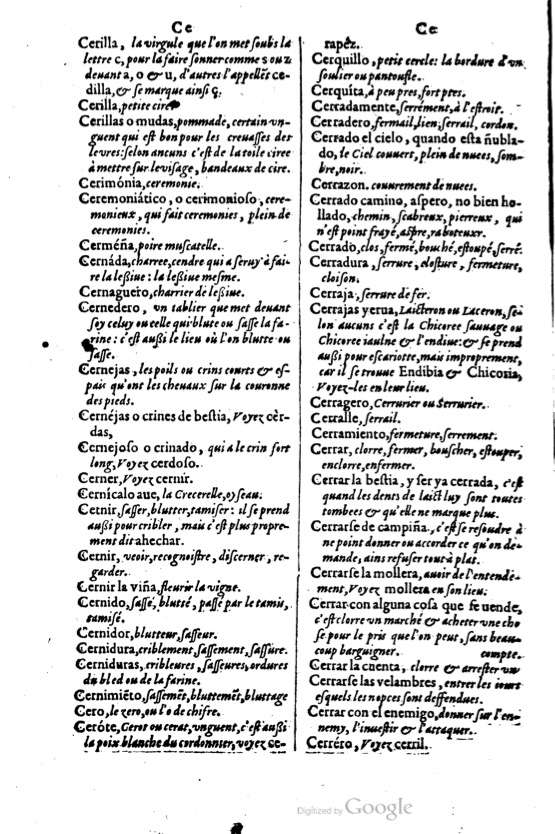 Ce
Cerilla, la virgule que l'on met soubs la
lettre c, pour la faire sonner comme s ou z
deuant a, o & u, d'autres l'appellẽt ce-
dilla, & se marque ainsi ç.
Cerilla, petite cire
Cerillas o mudas, pommade, certain vn-
guent qui est bon pour les creuasses des
leures: selon aucuns c'est de la toile ciree
à mettre sur le visage, bandeaux de cire.
Cerimónia, ceremonie.
Ceremoniático, o cerimonioso, cere-
monieux, qui fait ceremonies, plein de
ceremonies.
Cerméña, poire muscatelle.
Cernáda, charree, cendre qui a seruy à fai-
re la leßiue: la leßiue mesme.
Cernaguero, charrier de leßiue.
Cernedero, vn tablier que met deuant
soy celuy ou celle qui blute ou sasse la fa-
rine: c'est außi le lieu où l'on blutte ou
sasse.
Cernejas, les poils ou crins courts & es-
pais qu'ont les cheuaux sur la couronne
des pieds.
Cernéjas o crines de bestia, Voyez cèr-
das,
Cernejoso o crinado, qui a le crin fort
long, Voyez cerdoso.
Cerner, Voyez cernir.
Cernícalo aue, la Crecerelle, oyseau.
Cernir, sasser, blutter, tamiser: il se prend
außi pour cribler, mais c'est plus propre-
ment dit ahechar.
Cernir, veoir, recognoistre, discerner, re-
garder.
Cernir la viña, fleurir la vigne.
Cernido, sassé, blutté, passé par le tamis,
tamisé.
Cernidor, blutteur, sasseur.
Cernidura, criblement, sassement, sassure.
Cerniduras, cribleures, sasseures, ordures
du bled ou de la farine.
Cernimiẽto, sassemẽt, bluttemẽt, bluttage
Cero, le zero, ou l'o de chifre.
Ceróte, Cerot ou cerat, vnguent, c'est außi
la poix blanche du cordonnier, voyez ce-
Ce
rapéz.
Cerquillo, petit cercle: la bordure d'vn
soulier ou pantoufle.
Cerquita, à peu pres, fort pres.
Cerradamente, serrément, à l'estroit.
Cerradero, fermail, lien; serrail, cordon.
Cerrado el cielo, quando esta ñubla-
do, le Ciel couuert, plein de nuees, som-
bre, noir.
Cerrazon. couurement de nuees.
Cerrado camino, aspero, no bien ho-
llado, chemin, scabreux, pierreux, qui
n'est point frayé, aspre, raboteuxr.
Cerrado, clos, fermé, bouché, estoupé, serré.
Cerradura, serrure, closture, fermeture,
cloison.
Cerraja, serrure de fer.
Cerrajas yerua, Laicteron ou Laceron, se-
lon aucuns c'est la Chicoree sauuage ou
Chicoree iaulne & l'endiue: & se prend
außi pour escariotte, mais improprement,
car il se trouue Endibia & Chicoria,
Voyez-les en leur lieu.
Cerragero, Cerrurier ou Serrurier.
Cerralle, serrail.
Cerramiento, fermeture, serrement.
Cerrar, clorre, fermer, bouscher, estouper,
enclorre, enfermer.
Cerrar la bestia, y ser ya cerrada, c'est
quand les dents de laict luy sont toutes
tombees & qu'elle ne marque plus.
Cerrarse de campiña, c'est se resoudre à
ne point donner ou accorder ce qu'on de-
mande, ains refuser tout à plat.
Cerrarse la mollera, auoir de l'entende-
ment, Voyez mollera en son lieu.
Cerrar con alguna cosa que se uende,
c'est clorre vn marché & acheter vne cho
se pour le pris que l'on peut, sans beau-
coup barguigner. compte.
Cerrar la cuenta, clorre & arrester vn
Cerrarse las velambres, entrer les iours
esquels les nopces sont deffendues.
Cerrar con el enemigo, donner sur l'en-
nemy, l'inuestir & l'attaquer.
Cerréro, Voyez cerril.
Digitized by Google